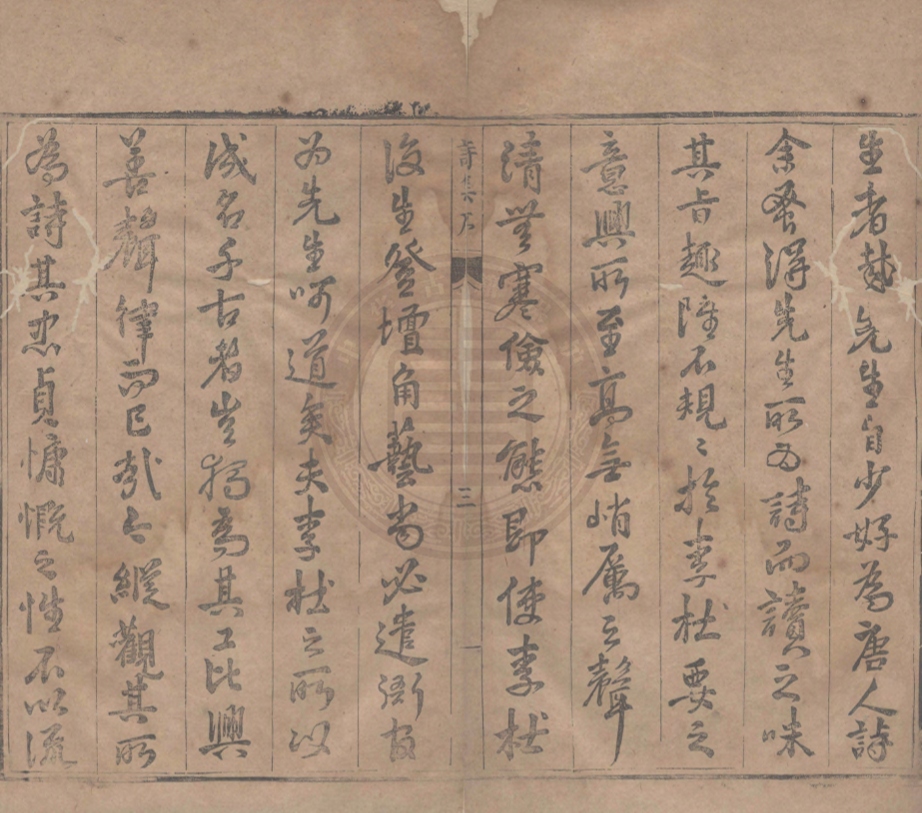 生者哉先生自少好為唐人詩
余蚤得先生所為詩而讀之味
其旨趣雖不規々於李杜要之
意興所至高無峭厲之聲
清無寒儉之態即使李杜
詩集序
三
一
復生登壇角藝當必遣銜枚
為先生呵道矣夫李杜之所以
成名千古者豈獨為其工比興
善聲律而已哉今縱觀其所
為詩其忠貞慷慨之性不以流